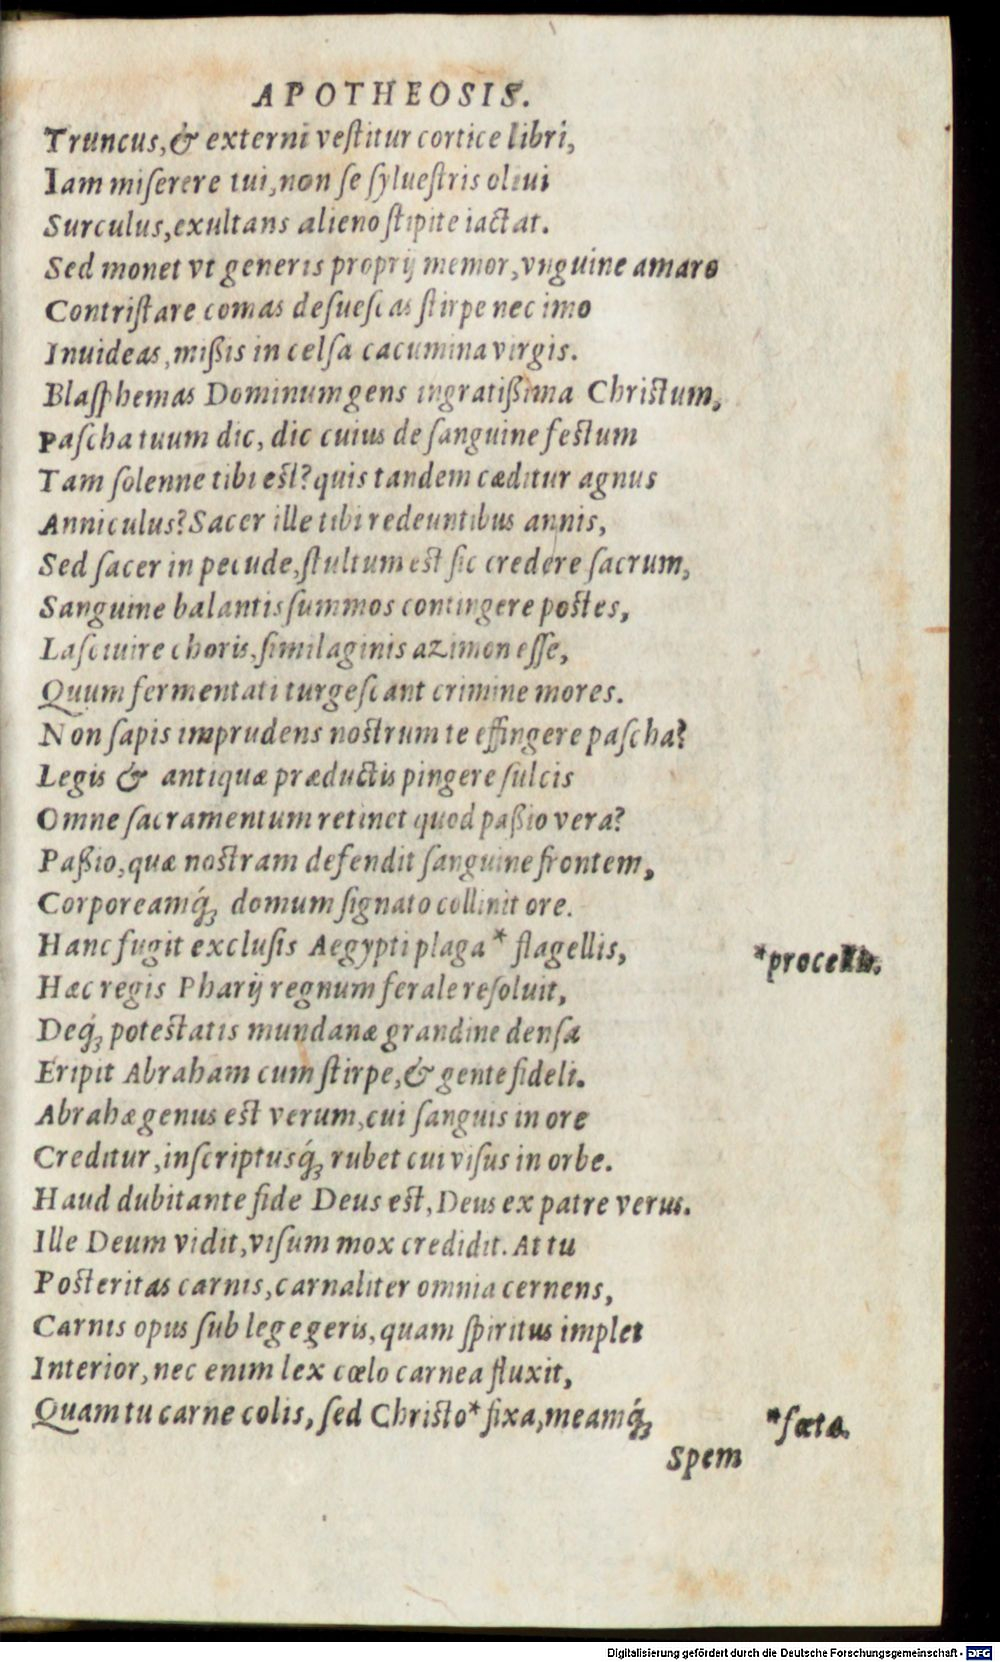 APOTHEOSIS.
Truncus, & externi vestitur cortice libri,
Iam miserere tui, non se syluestris oliui
Surculus, exultans alieno stipite iactat.
Sed monet vt generis proprij memor, vnguine amaro
Contristare comas desuescas stirpe nec imo
Inuideas, mißis in celsa cacumina virgis.
Blasphemas Dominum gens ingratißima Christum,
Pascha tuum dic, dic cuius de sanguine festum
Tam solenne tibi est? quis tandem cæditur agnus
Anniculus? Sacer ille tibi redeuntibus annis,
Sed sacer in pecude, stultum est sic credere sacrum,
Sanguine balantis summos contingere postes,
Lasciuire choris, similaginis azimon esse,
Quum fermentati turgescant crimine mores.
Non sapis imprudens nostrum te effingere pascha?
Legis & antiquæ præductis pingere sulcis
Omne sacramentum retinet quod paßio vera?
Paßio, quæ nostram defendit sanguine frontem,
Corporeamq́; domum signato collinit ore.
Hanc fugit exclusis Aegypti plaga * flagellis,
*procellis.
Hæc regis Pharij regnum ferale resoluit,
Deq́; potestatis mundanæ grandine densa
Eripit Abraham cum stirpe, & gente fideli.
Abrahæ genus est verum, cui sanguis in ore
Creditur, inscriptusq́; rubet cui visus in orbe.
Haud dubitante fide Deus est, Deus ex patre verus.
Ille Deum vidit, visum mox credidit. At tu
Posteritas carnis, carnaliter omnia cernens,
Carnis opus sub lege geris, quam spiritus implet
Interior, nec enim lex cœlo carnea fluxit,
Quam tu carne colis, sed Christo * fixa, meamq́;
*fœta.
Spem
Digitalisierung gefördert durch die Deutsche Forschungsgemeinschaft - DFG